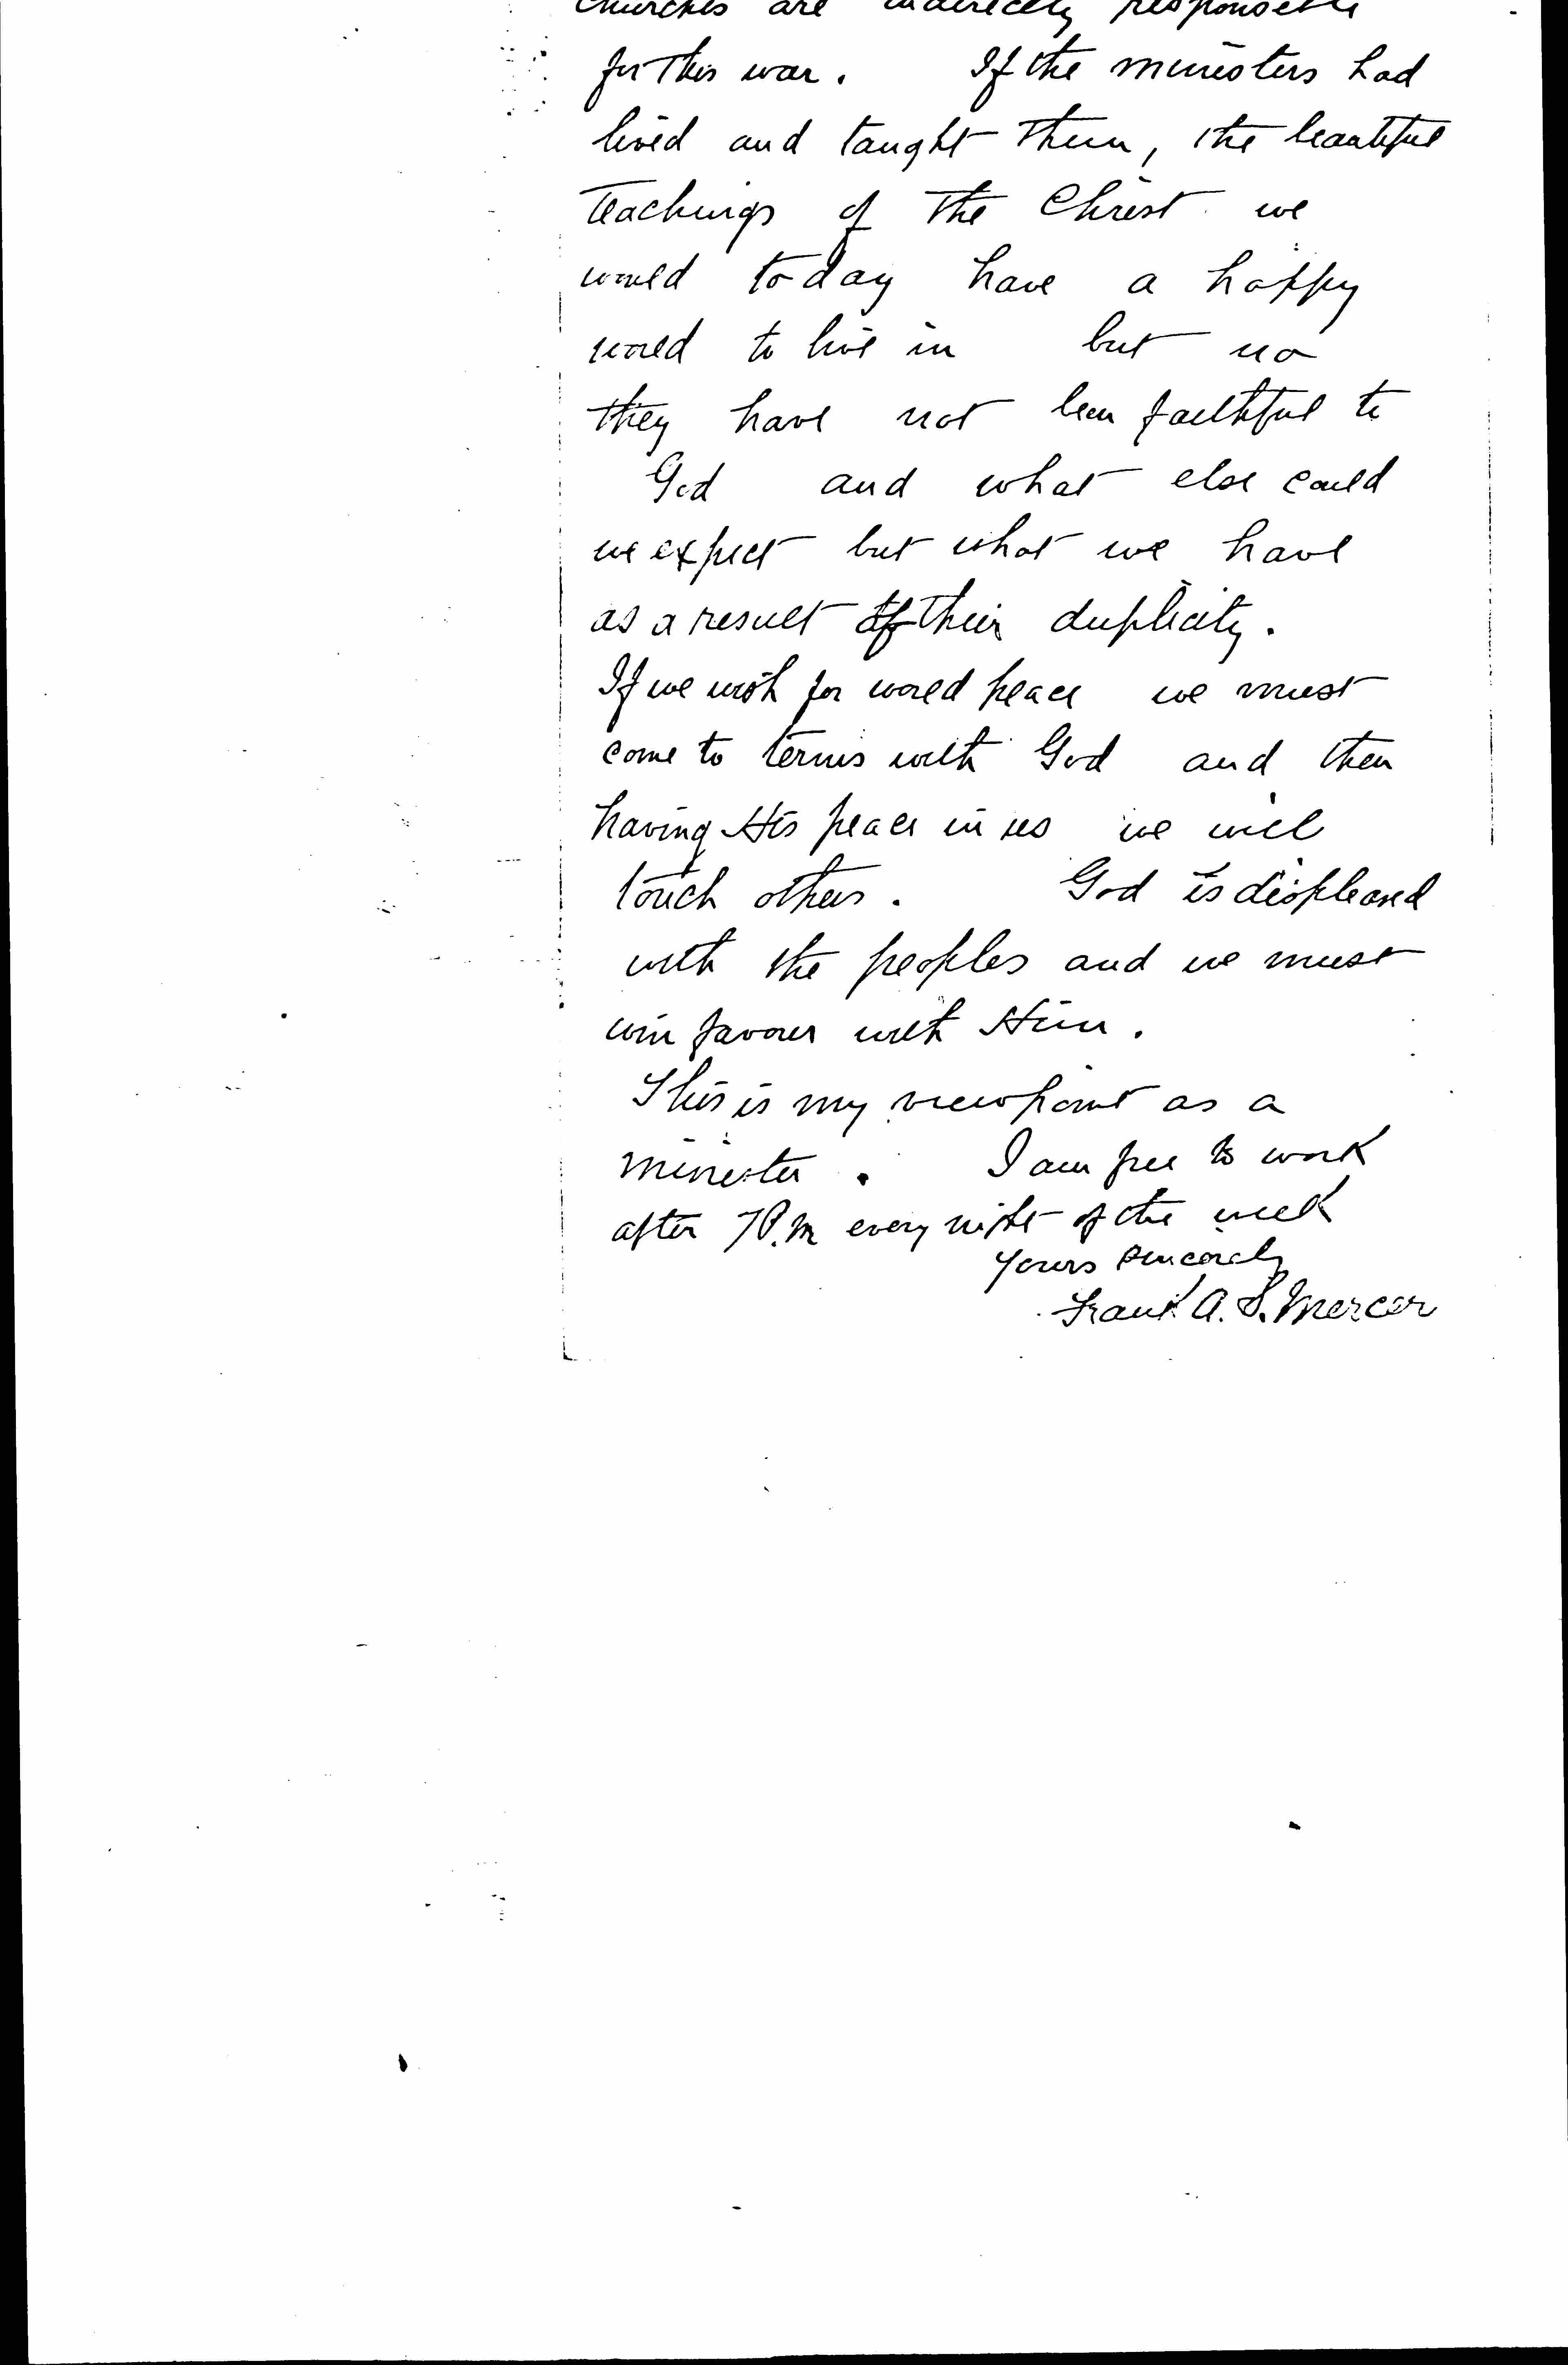 Churches are indirectly responsible
for this war. If the ministers had
lived and taught them, the beautiful
teachings of the Christ we
would today have a happy
world to live in but no
they have not been faithful to
God and what else could
we expect but what we have
as a result of their duplicity.
If we wish for world peace we must
come to terms with God and then
having His peace in us we will
touch others. God is displeased
with the peoples and we must
win favour with Him.
This is my viewpoint as a
minister. I am free to work
after 7P.M every night of the week
Yours Sincerely
Frank A. S. Mercer